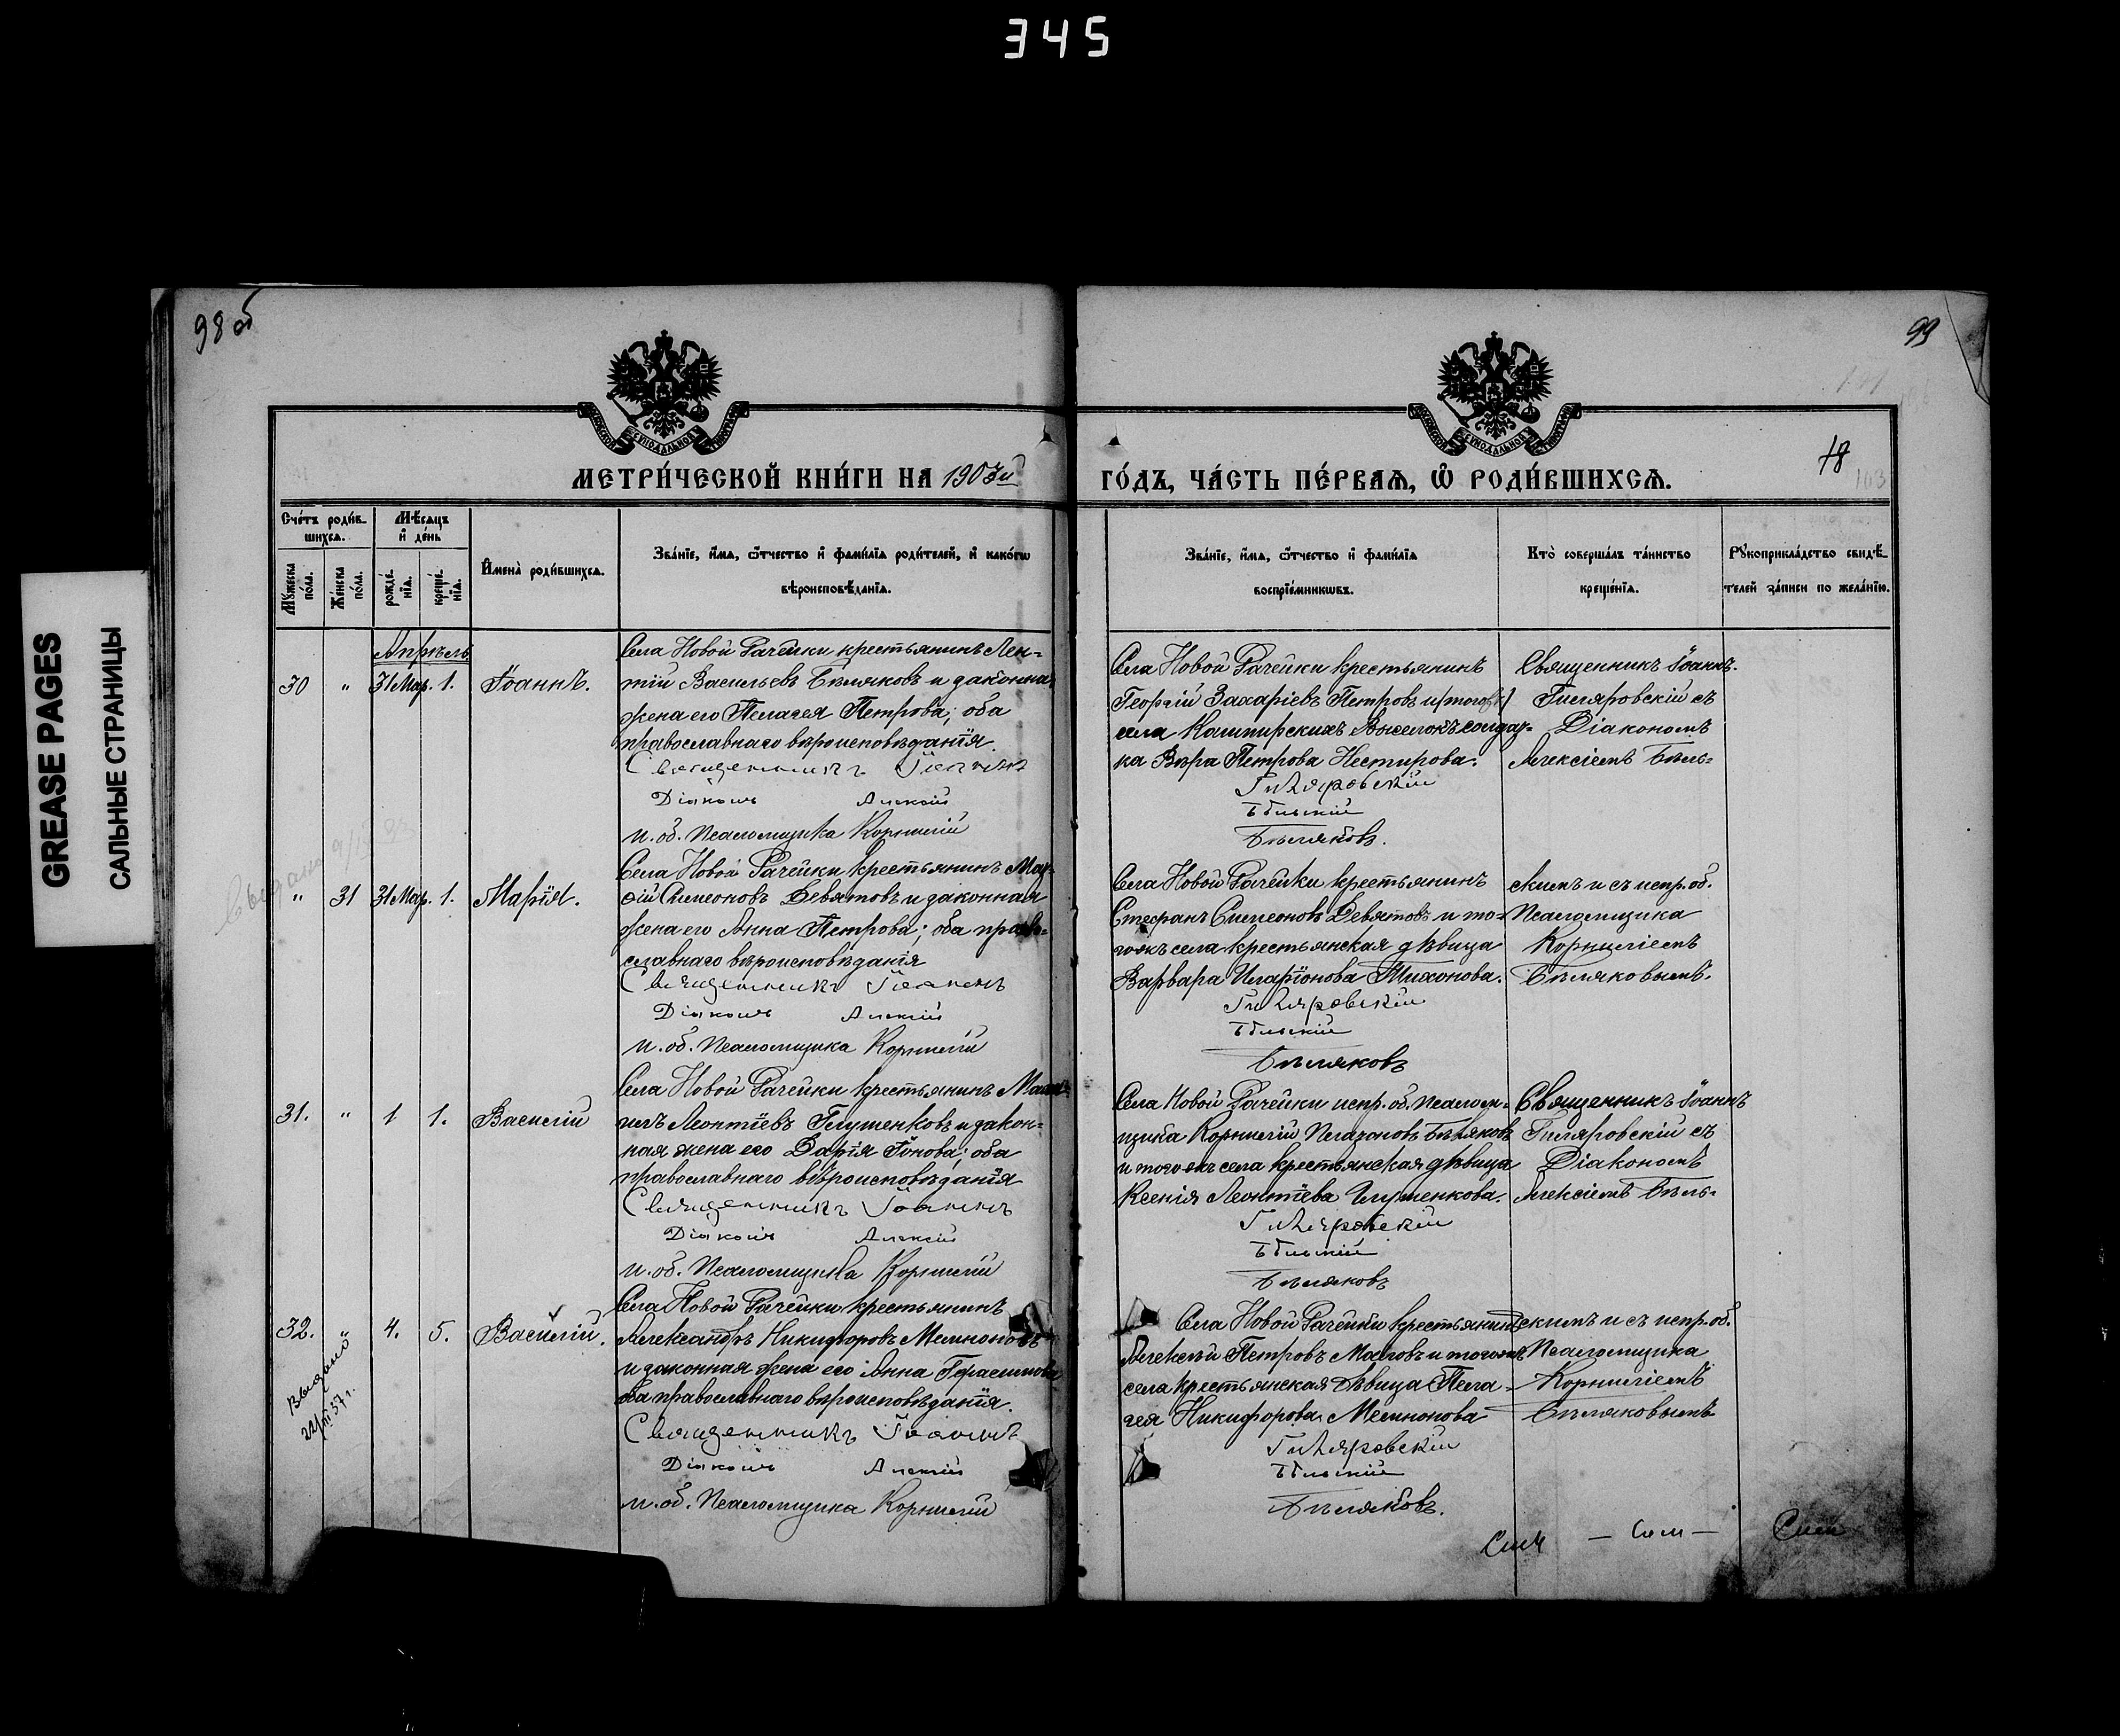 345
98 об
99
18
103
МЕТРИ́ЧЕСКОЙ КНИ́ГИ НА 1903й
ГО́ДЪ, ЧА́СТЬ ПЕ́РВАѦ, Ѡ҆ РОДИ́ВШИХСѦ.
GREASE PAGES
САЛЬНЫЕ СТРАНИЦЫ
Сче́тъ роди́в-
шихсѧ.
Мѣ́сѧцъ
и҆ де́нь
Мꙋ́жеска
по́ла.
Же́нска
по́ла.
рожде́-
нїѧ.
креще́-
нїѧ.
И҆мена̀ роди́вшихсѧ.
Зва́нїе, и҆́мѧ, ѻ҆́тчество и҆ фами́лїѧ роди́телей, и҆ како́гѡ
вѣроисповѣ́данїѧ.
Зва́нїе, и҆́мѧ, ѻ҆́тчество и҆ фами́лїѧ
воспрїе́мникѡвъ.
Кто̀ соверша́лъ та́инство
креще́нїѧ.
Рꙋкоприкла́дство свидѣ́-
телей за́писи по жела́нїю.
Апрѣль
30 " 31 Мар. 1. Іоаннъ.
Села Новой Рачейки крестьянинъ Леон-
тій Васильевъ Бѣляковъ и законная
жена его Пелагея Петрова; оба
православнаго вѣроисповѣданія.
Священникъ Іоаннъ
Діаконъ Алексій
и. об. Псаломщика Корнилій
Села Новой Рачейки крестьянинъ
Георгій Захаріевъ Петровъ и
села Кашпирскихъ Выселокъ солдат-
ка Вѣра Петрова Нестирова.
Гиляровскій
Бѣльскій
Бѣляковъ.
Священникъ Іоаннъ
Гиляровскій съ
Діакономъ
Алексіемъ Бѣль-
" 31 31 Мар. 1. Марія.
Села Новой Рачейки крестьянинъ
Симеоновъ Девятовъ и законная
жена его Анна Петрова; оба право-
славнаго вѣроисповѣданія
Священникъ Іоаннъ
Діаконъ Алексій
и. об. Псаломщика Корнилій
Села Новой Рачейки крестьянинъ
Стефанъ Симеоновъ Девятовъ и то-
гожъ села крестьянская дѣвица
Варвара Иларіонова Тихонова.
Гиляровскій
Бѣльскій
Бѣляковъ
скимъ и съ испр. об.
Псаломщика
Корниліемъ
Бѣляковымъ.
31. " 1 1. Василій
Села Новой Рачейки крестьянинъ
Леонтіевъ Глушенковъ и закон-
ная жена его Дарія Іонова; оба
православнаго вѣроисповѣданія
Священникъ Іоаннъ
Діаконъ Алексій
и. об. Псаломщика Корнилій
Села Новой Рачейки испр. об. псалом-
щика Корнилій Бѣляковъ
и того жъ села крестьянская дѣвица
Ксенія Леонтіева Глушенкова.
Гиляровскій
Бѣльскій
Бѣляковъ
Священникъ Іоаннъ
Гиляровскій съ
Діакономъ
Алексіемъ Бѣль-
32. " 4. 5. Василій.
Выдано
22/III 37 г.
Села Новой Рачейки крестьянинъ
Александръ Никифоровъ Мемноновъ
и законная жена его Анна Герасимова
оба православнаго вѣроисповѣданія.
Священникъ Іоаннъ
Діаконъ Алексій
и. об. Псаломщика Корнилій
Села Новой Рачейки крестьянинъ
Алексѣй Петровъ и того жъ
села крестьянская дѣвица Пела-
гея Никифорова Мемнонова
Гиляровскій
Бѣльскій
Бѣляковъ.
скимъ и съ испр. об.
Псаломщика
Корниліемъ
Бѣляковымъ